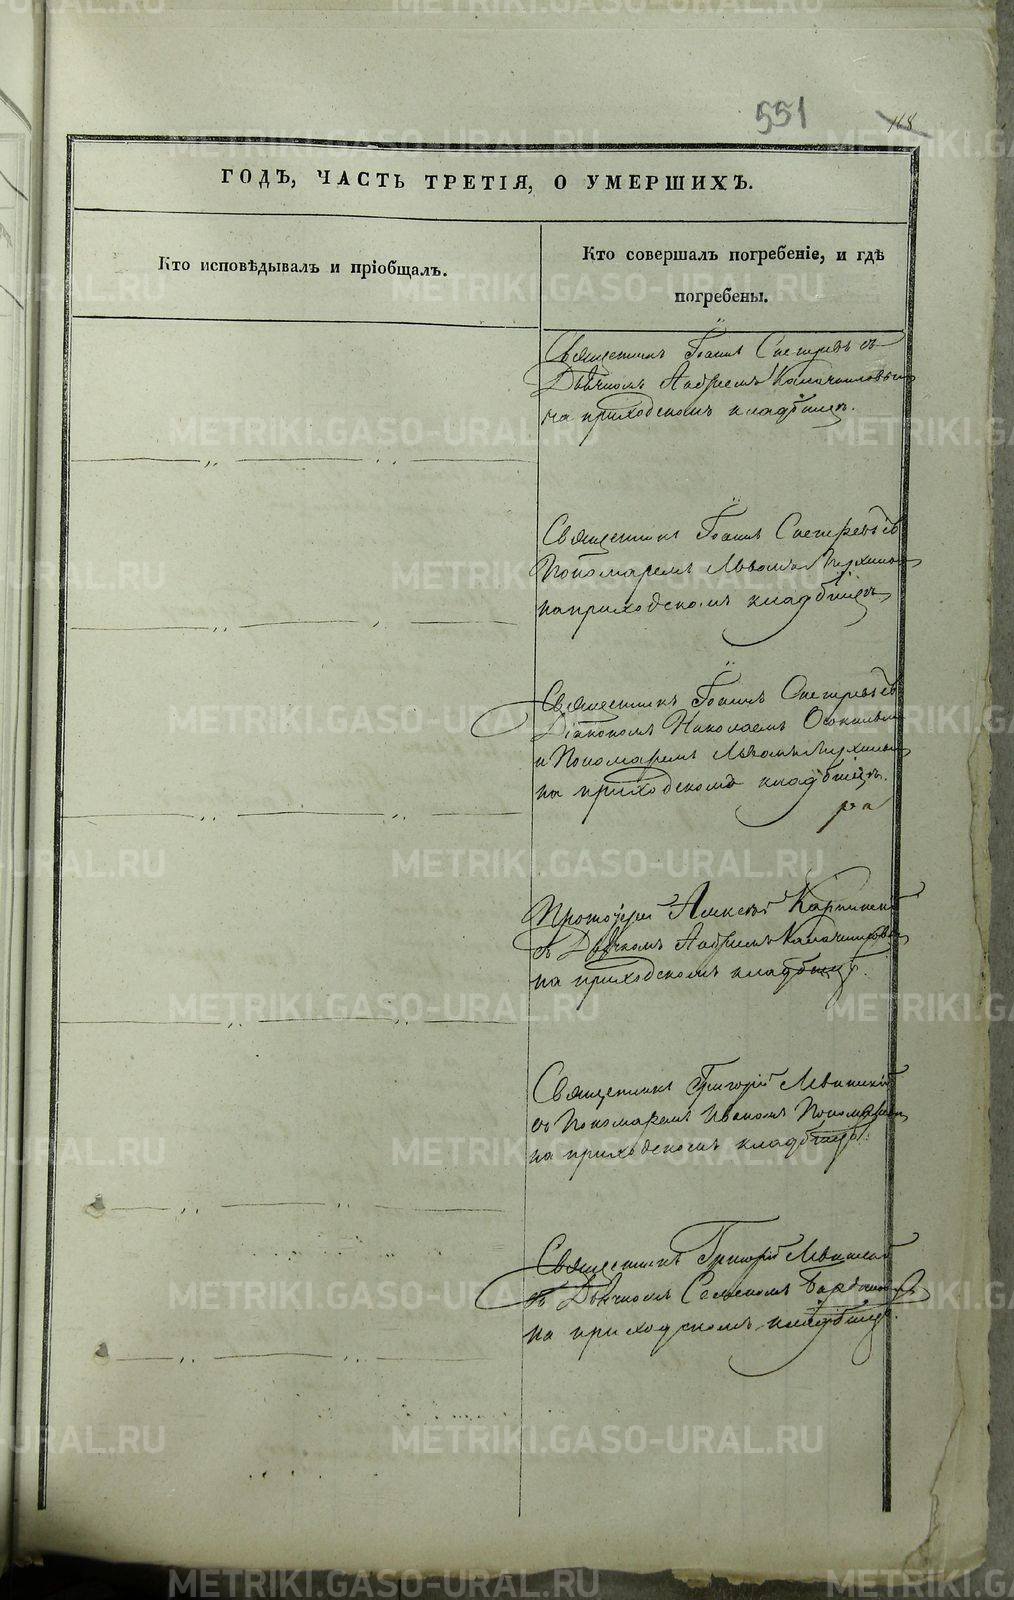 551
118
ГОДЪ, ЧАСТЬ ТРЕТІЯ, О УМЕРШИХЪ.
Кто исповѣдывалъ и пріобщалъ.
Кто совершалъ погребеніе, и гдѣ
погребены.
Священникъ Іоаннъ Снегиревъ съ
Дьячкомъ Андреемъ Калачниковымъ
на приходскомъ кладбищѣ.
Священникъ Іоаннъ Снегиревъ съ
Пономаремъ
на приходскомъ кладбищѣ
Священникъ Іоаннъ Снегиревъ съ
Діакономъ Николаемъ
и Пономаремъ
на приходскомъ кладбищѣ.
Протоіерей Алексѣй
съ Дьячкомъ Андреемъ Калачниковымъ
на приходскомъ кладбищѣ.
Священникъ Григорій
съ Пономаремъ Иваномъ
на приходскомъ кладбищѣ.
Священникъ Григорій
съ Дьячкомъ
на приходскомъ кладбищѣ.
METRIKI.GASO-URAL.RU